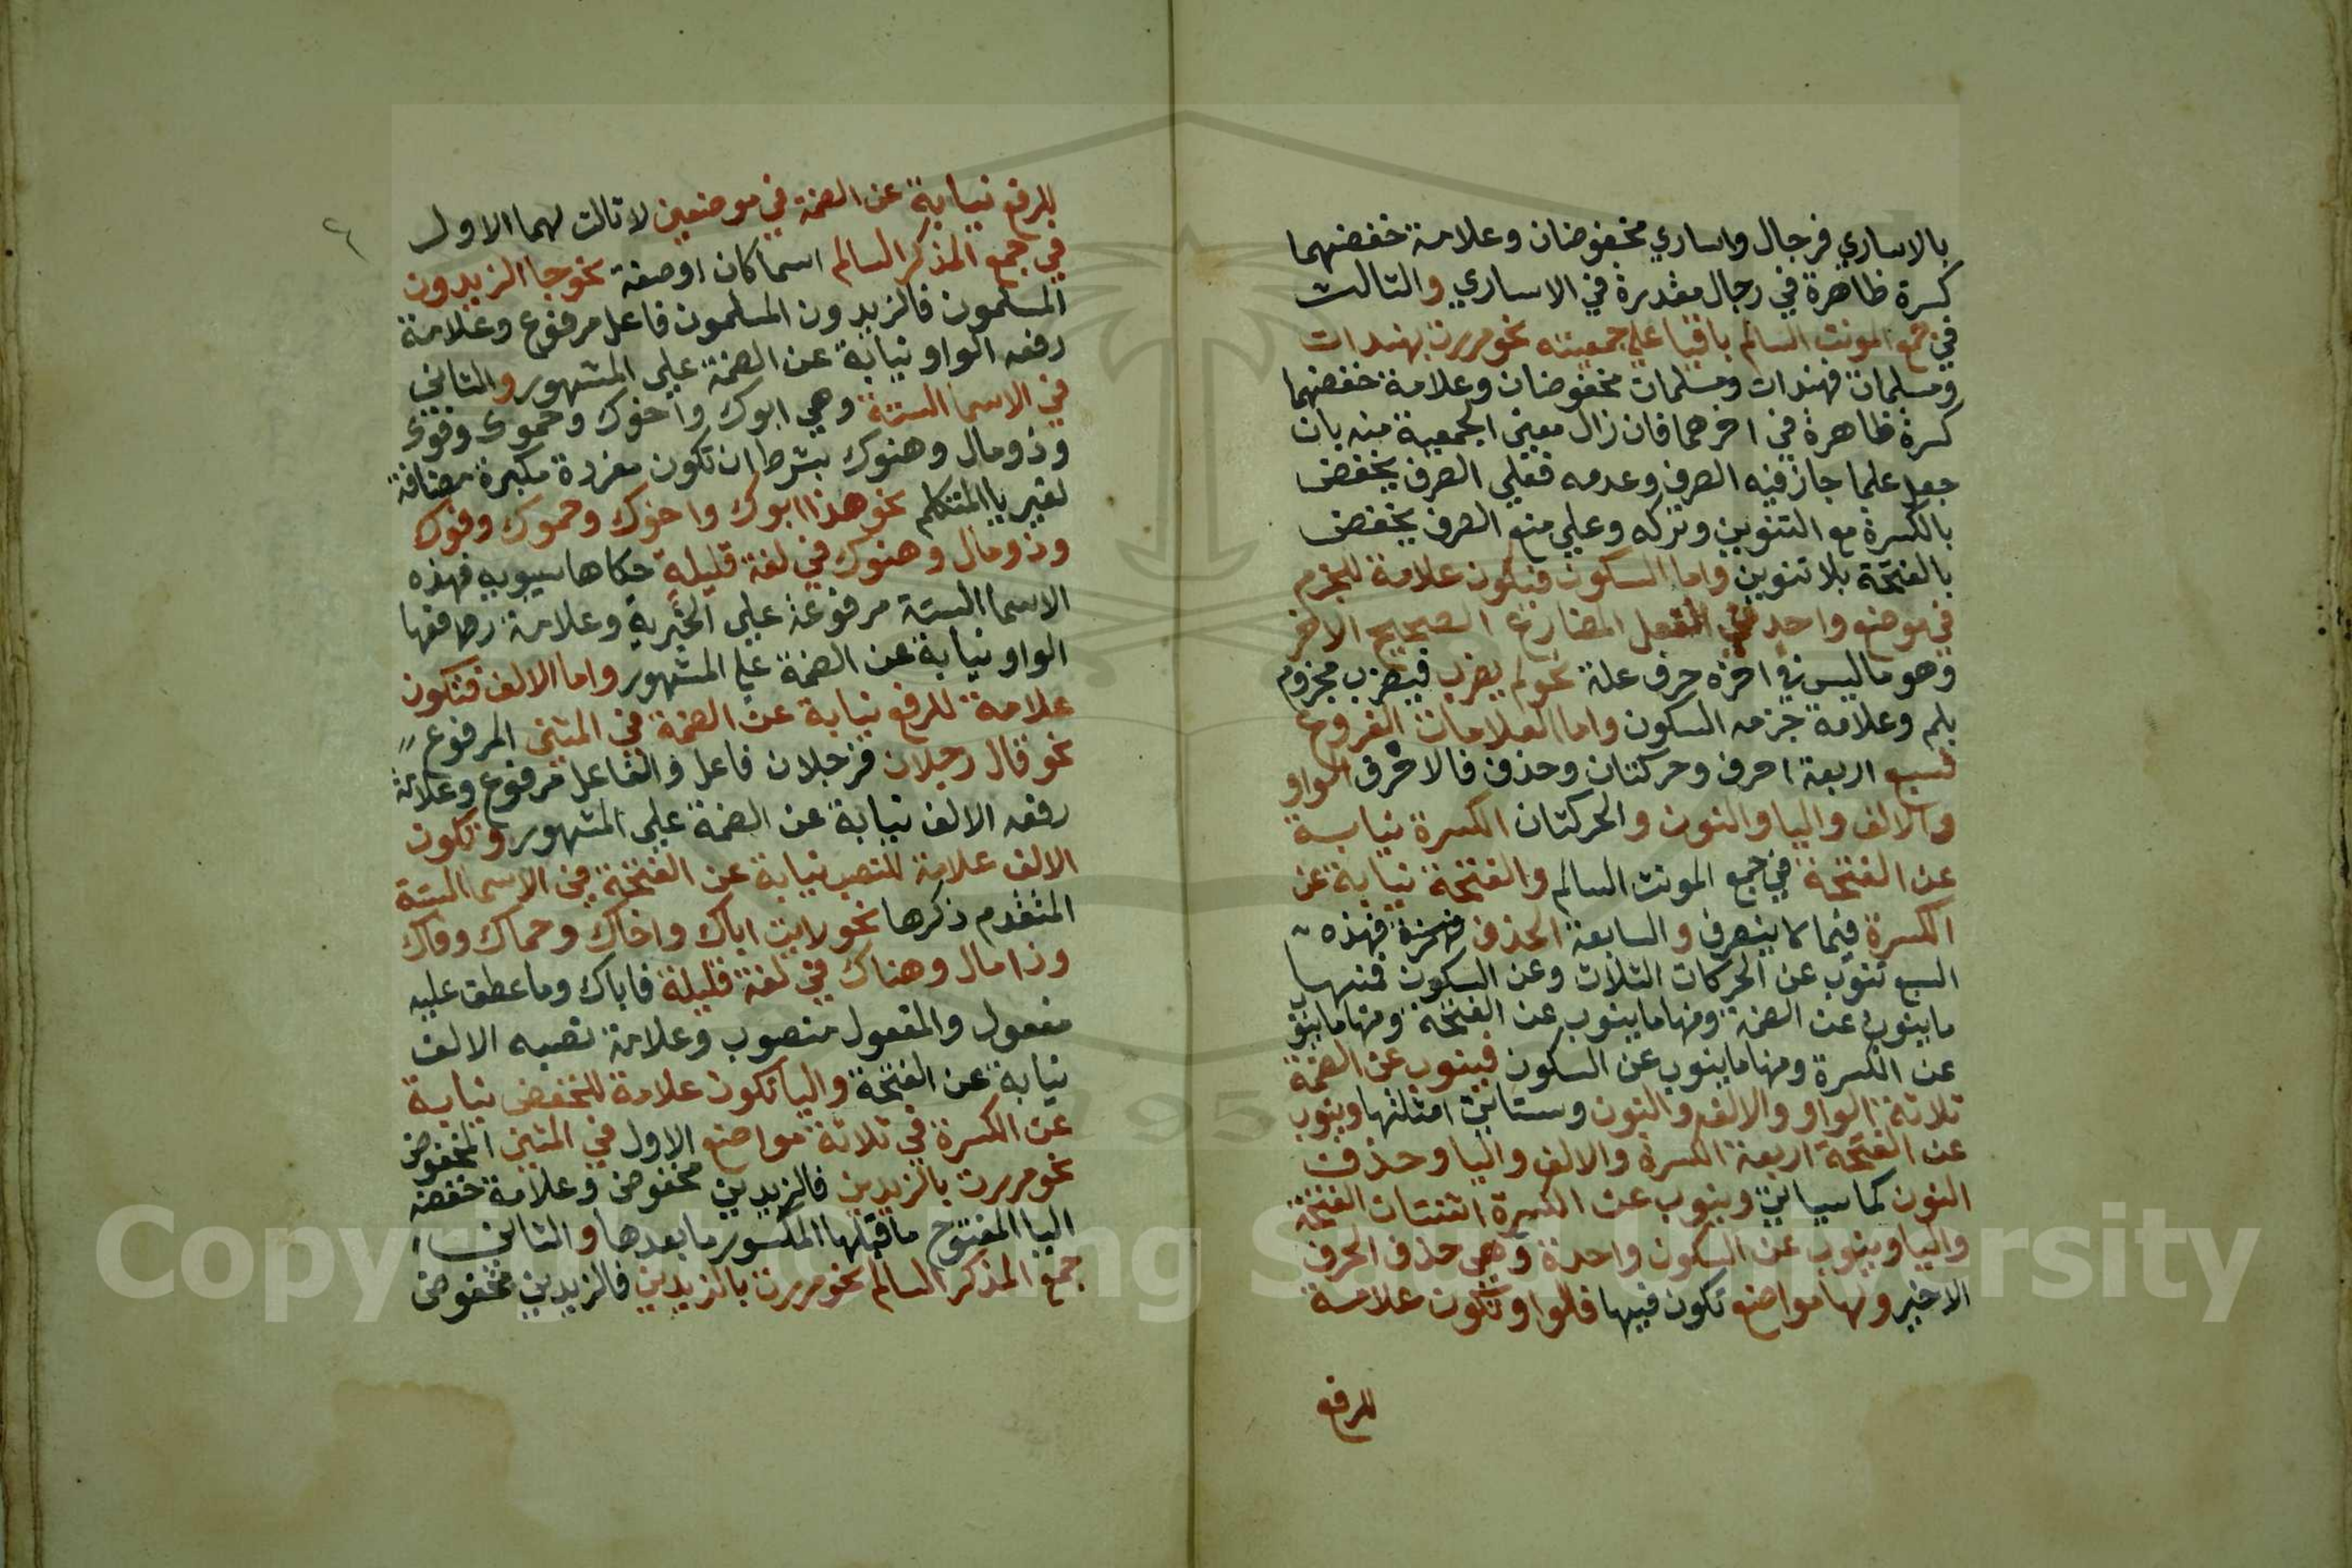 بالاساري فرجال واساري مخفوضان وعلامة خفضهما
كسرة ظاهرة في رجال مقدرة في الاساري والثالث
في جمع المونث السالم باقيا علي جمعيته نحو مررت بهندات
ومسلمات فهندات ومسلمات مخفوضان وعلامة خفضهما
كسرة ظاهرة في اخرهما فان زال معني الجمعية منه بان
جعل علما جاز فيه الصرف وعدمه فعلي الصرف يخفض
بالكسرة مع التنوين وتركه وعلي منع الصرف يخفض
بالفتحة بلا تنوين واما السكون فتكون علامة للجزم
في موضع واحد في الفعل المضارع الصحيح الاخر
وهو ما ليس في اخره حرف علة نحو لم يضرب فيضرب مجزوم
بلم وعلامة جزمه السكون واما العلامات الفروع
فسبع اربعة احرف وحركتان وحذف فالاحرف الواو
والالف واليا والنون والحركتان الكسرة نيابة
عن الفتحة في جمع المونث السالم والفتحة نيابة عن
الكسرة فيما لا ينصرف والسابعة الحذف فهذه
السبع تنوب عن الحركات الثلاث وعن السكون فمنها
ما ينوب عن الضمة ومنها ما ينوب عن الفتحة ومنها ما ينو
عن الكسرة ومنها ما ينوب عن السكون فينوب عن الضمة
ثلاثة الواو والالف والنون وستاتي امثلتها وينوب
عن الفتحة اربعة الكسرة والالف واليا وحذف
النون كما سياتي وينوب عن الكسرة اثنتان الفتحة
واليا وينوب عن السكون واحدة وهي حذف الحرف
الاخير ولها مواضع تكون فيها فالواو تكون علامة
للرفع
٤
للرفع نيابة عن الضمة في موضعين لا ثالث لهما الاول
في جمع المذكر السالم اسما كان اوصفة نحو جا الزيدون
المسلمون فالزيدون المسلمون فاعل مرفوع وعلامة
رفعه الواو نيابة عن الضمة علي المشهور والثاني
في الاسما الستة وهي ابوك واخوك وحموك وفوك
وذو مال وهنوك بشرط ان تكون مفردة مكبرة مضافة
لغير يا المتكلم نحو هذا ابوك واخوك وحموك وفوك
وذو مال وهنوك في لغة قليلة حكاها سيبويه فهذه
الاسما الستة مرفوعة علي الخبرية وعلامة رفعها
الواو نيابة عن الضمة علي المشهور واما الالف فتكون
علامة للرفع نيابة عن الضمة في المثني المرفوع
نحو قال رجلان فرجلان فاعل والفاعل مرفوع وعلامة
رفعه الالف نيابة عن الضمة علي المشهور وتكون
الالف علامة للنصب نيابة عن الفتحة في الاسما الستة
المتقدم ذكرها نحو رايت اباك واخاك وحماك وفاك
وذا مال وهناك في لغة قليلة فاباك وما عطف عليه
مفعول والمفعول منصوب وعلامة نصبه الالف
نيابة عن الفتحة واليا تكون علامة للخفض نيابة
عن الكسرة في ثلاثة مواضع الاول في المثني المخفوض
نحو مررت بالزيدين فالزيدين مخفوض وعلامة خفضه
اليا المفتوح ما قبلها المكسور ما بعدها والثاني
جمع المذكر السالم نحو مررت بالزيدين فالزيدين مخفوض
Copyright © King Saud University
195